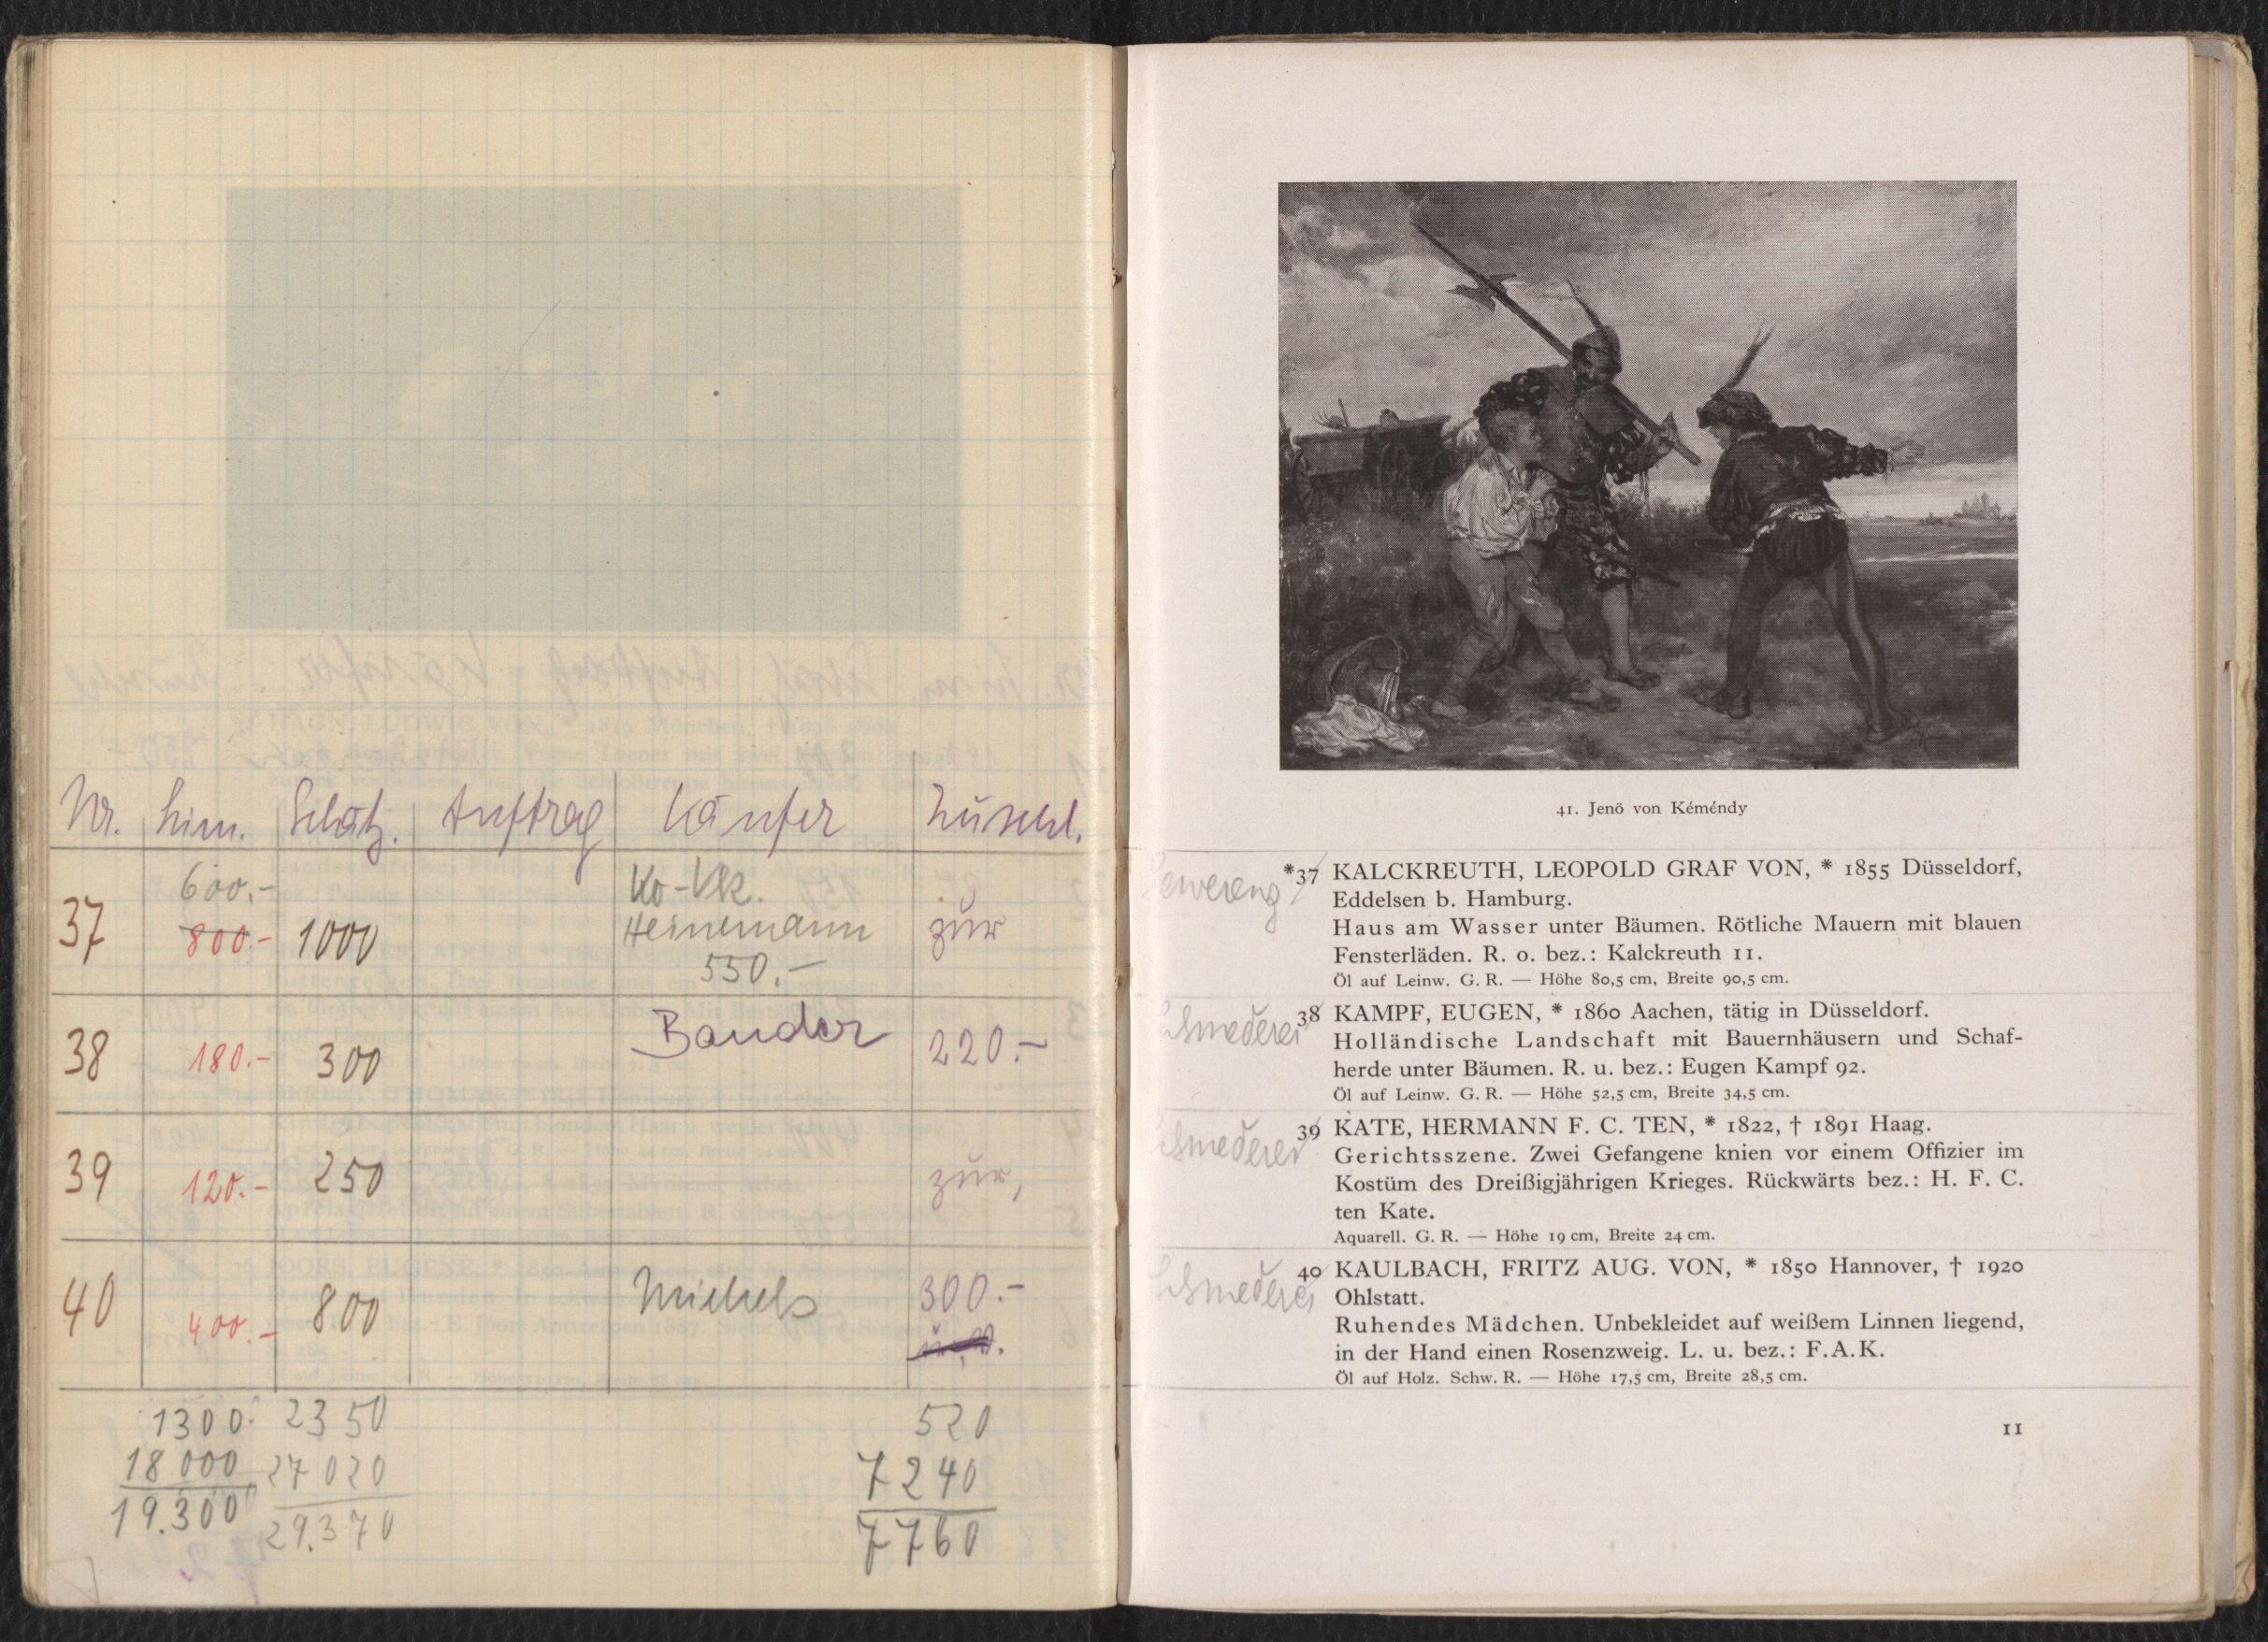 Nr. Lim. Schätz. Auftrag Käufer Zuschl.
600.- Ko-Vk.
37 800.- 1000 Heinemann zur
550.-
38 180.- 300 Bauder 220.-
39 120.- 250 zur,
40 400.- 800 Michels 300.-
1300.- 2350 520
18 000 27 020 7240
19.300 29.370 7760
41. Jenö von Kéméndy
*37 KALCKREUTH, LEOPOLD GRAF VON, * 1855 Düsseldorf,
Eddelsen b. Hamburg.
Haus am Wasser unter Bäumen. Rötliche Mauern mit blauen
Fensterläden. R. o. bez.: Kalckreuth 11.
Öl auf Leinw. G. R. — Höhe 80,5 cm, Breite 90,5 cm.
38 KAMPF, EUGEN, * 1860 Aachen, tätig in Düsseldorf.
Holländische Landschaft mit Bauernhäusern und Schaf-
herde unter Bäumen. R. u. bez.: Eugen Kampf 92.
Öl auf Leinw. G. R. — Höhe 52,5 cm, Breite 34,5 cm.
39 KATE, HERMANN F. C. TEN, * 1822, † 1891 Haag.
Gerichtsszene. Zwei Gefangene knien vor einem Offizier im
Kostüm des Dreißigjährigen Krieges. Rückwärts bez.: H. F. C.
ten Kate.
Aquarell. G. R. — Höhe 19 cm, Breite 24 cm.
40 KAULBACH, FRITZ AUG. VON, * 1850 Hannover, † 1920
Ohlstatt.
Ruhendes Mädchen. Unbekleidet auf weißem Linnen liegend,
in der Hand einen Rosenzweig. L. u. bez.: F. A. K.
Öl auf Holz. Schw. R. — Höhe 17,5 cm, Breite 28,5 cm.
11